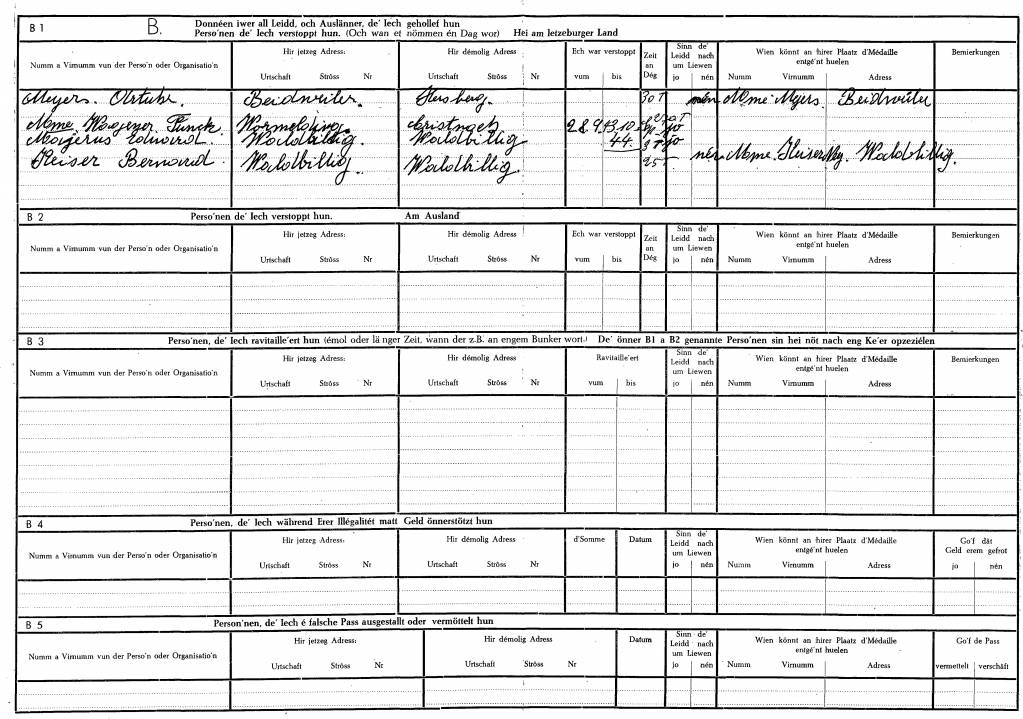 B 1 B. Donnéen iwer all Leidd, och Auslänner, de' Iech gehollef hun
Perso'nen de' Iech verstoppt hun. (Och wan et nömmen én Dag wor) Hei am letzeburger Land
Numm a Virnumm vun der Perso'n oder Organisatio'n Hir jetzeg Adress: Hir démolig Adress Ech war verstoppt Zeit an Dég Sinn de' Leidd nach um Liewen Wien könnt an hirer Plaatz d'Médaille entgé'nt huelen Bemierkungen
Urtschaft Ströss Nr Urtschaft Ströss Nr vum bis jo nén Numm Virnumm Adress
Meyers. Beidweiler. Hersberg. 30 T nén Mme Meyers. Beidweiler
Mme Wagener Funck. Wormelding. Cristnach 28.9 13.10 jo
Majerus Edouard. Waldbillig. Waldbillig 44. 3 T jo
Heiser Bernard. Waldbillig Waldbillig. 25 T nén Mme. Heiser Waldbillig.
B 2 Perso'nen de' Iech verstoppt hun. Am Ausland
Numm a Virnumm vun der Perso'n oder Organisatio'n Hir jetzeg Adress: Hir démolig Adress Ech war verstoppt Zeit an Dég Sinn de' Leidd nach um Liewen Wien könnt an hirer Plaatz d'Médaille entgé'nt huelen Bemierkungen
Urtschaft Ströss Nr Urtschaft Ströss Nr vum bis jo nén Numm Virnumm Adress
B 3 Perso'nen, de' Iech ravitaille'ert hun (émol oder lä nger Zeit, wann der z.B. an engem Bunker wort.) De' önner B1 a B2 genannte Perso'nen sin hei nöt nach eng Ke'er opzeziélen
Numm a Virnumm vun der Perso'n oder Organisatio'n Hir jetzeg Adress: Hir démolig Adress Ravitaille'ert Sinn de' Leidd nach um Liewen Wien könnt an hirer Plaatz d'Médaille entgé'nt huelen Bemierkungen
Urtschaft Ströss Nr Urtschaft Ströss Nr vum bis jo nén Numm Virnumm Adress
B 4 Perso'nen, de' Iech während Erer Illégalitét matt Geld önnerstötzt hun
Numm a Virnumm vun der Perso'n oder Organisatio'n Hir jetzeg Adress: Hir démolig Adress d'Somme Datum Sinn de' Leidd nach um Liewen Wien könnt an hirer Plaatz d'Médaille entgé'nt huelen Go'f dät Geld erem gefrot
Urtschaft Ströss Nr Urtschaft Ströss Nr jo nén Numm Virnumm Adress jo nén
B 5 Person'nen, de' Iech é falsche Pass ausgestallt oder vermöttelt hun
Numm a Virnumm vun der Perso'n oder Organisatio'n Hir jetzeg Adress: Hir démolig Adress Datum Sinn de' Leidd nach um Liewen Wien könnt an hirer Plaatz d'Médaille entgé'nt huelen Go'f de Pass
Urtschaft Ströss Nr Urtschaft Ströss Nr jo nén Numm Virnumm Adress vermettelt verschäft